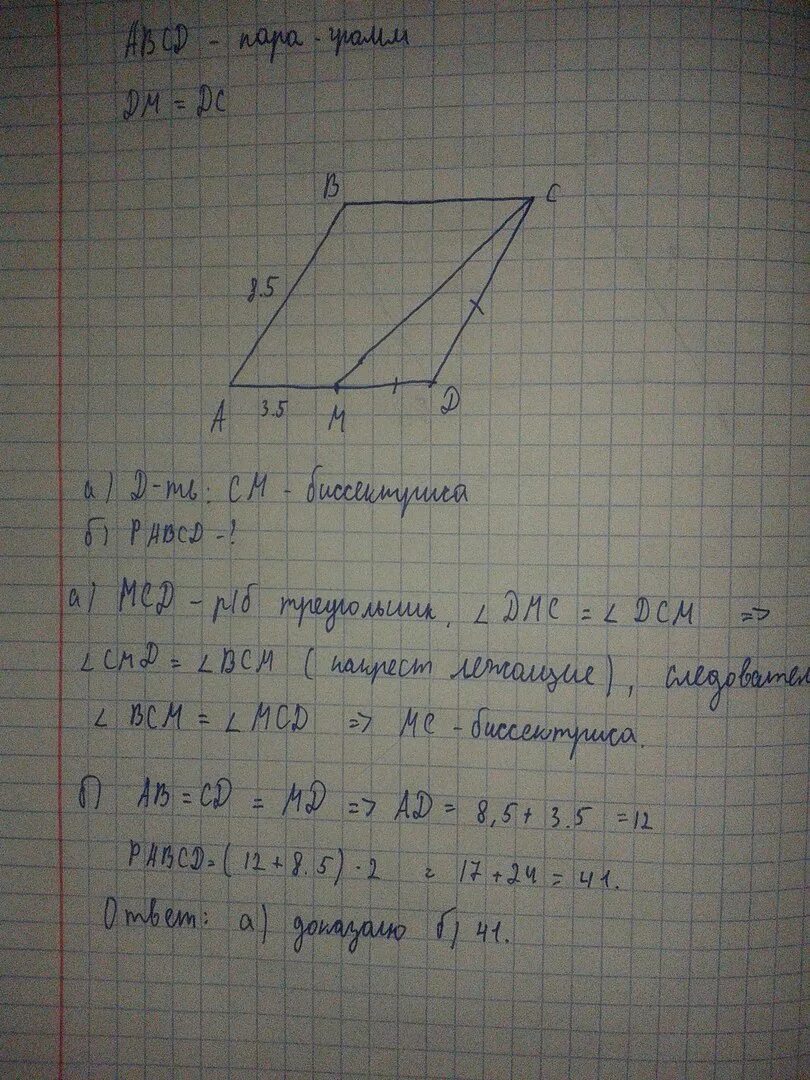 ABCD - пара-грамм
DM = DC
B
C
8.5
A
3.5
M
D
а) Д-ть: CM - биссектриса
б) PABCD -?
а) MCD - р/б треугольник, ∠ DMC = ∠ DCM =>
∠ CMD = ∠ BCM (накрест лежащие), следовател
∠ BCM = ∠ MCD => MC - биссектриса.
б) AB = CD = MD => AD = 8,5 + 3.5 = 12
PABCD = (12 + 8.5) · 2 = 17 + 24 = 41.
Ответ: а) доказано б) 41.